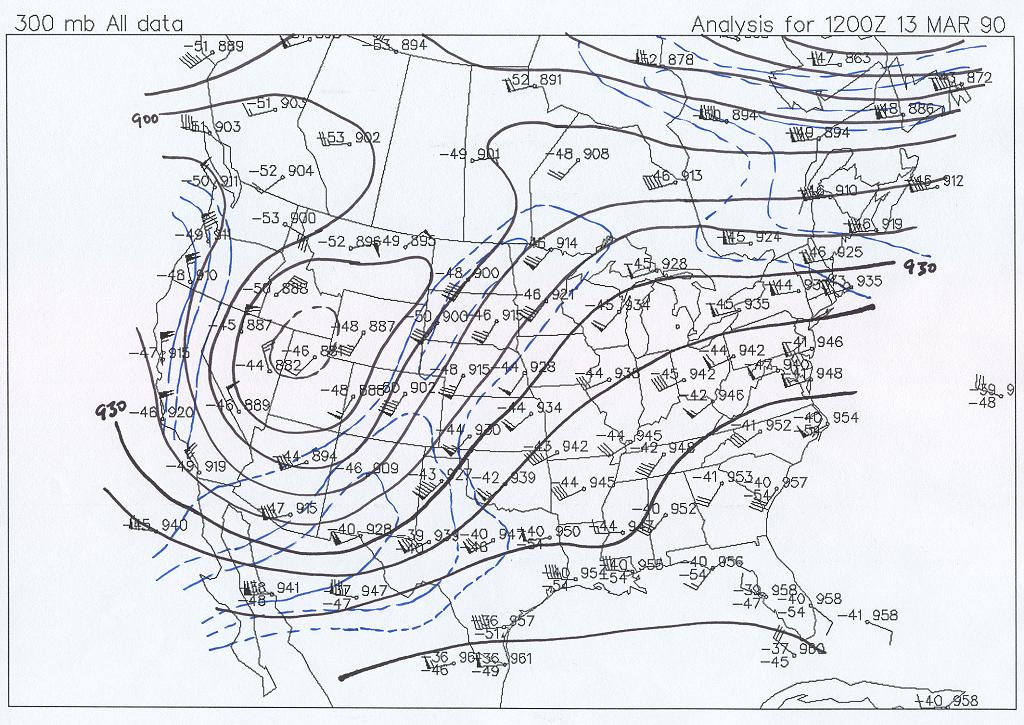 300 mb All data Analysis for 1200Z 13 MAR 90
-51 889
-53 894
878
-47 863
-52 891
872
-51 903
894
-48 886
900
-51 903
-53 902
894
-49 901
-48 908
-52 904
-46 913
-50 911
-46 910
-45 912
-53 900
-46 919
-49 911
-52 895
-49 895
914
-45 924
-46 925
-45 928
930
-48 910
-48 900
-50 888
-44
935
-46 921
-45 934
-45 935
-50 900
-46 915
-45 887
-48 887
-41 946
-47 915
-46
-44 942
-44 882
-48 915
-44 928
-44
-45 942
948
-48
902
-46 889
-42 946
930
-46 920
-44 934
-40 954
-41 952
-44 930
-44 945
-43 942
-42 948
-49 919
-44 894
-46 909
-43 927
-42 939
-44 945
-41 953
-40 957
-54
-47 915
-40 952
-45 940
-40 928
-39
-40
-40 950
-54
-44
-40 956
-54
-54
-54
941
-48
947
-47
-39 958
-47
-40 958
-54
-41 958
-36 957
-51
-37 960
-45
-36
-46
-36 961
-49
-59 9
-48
-40 958